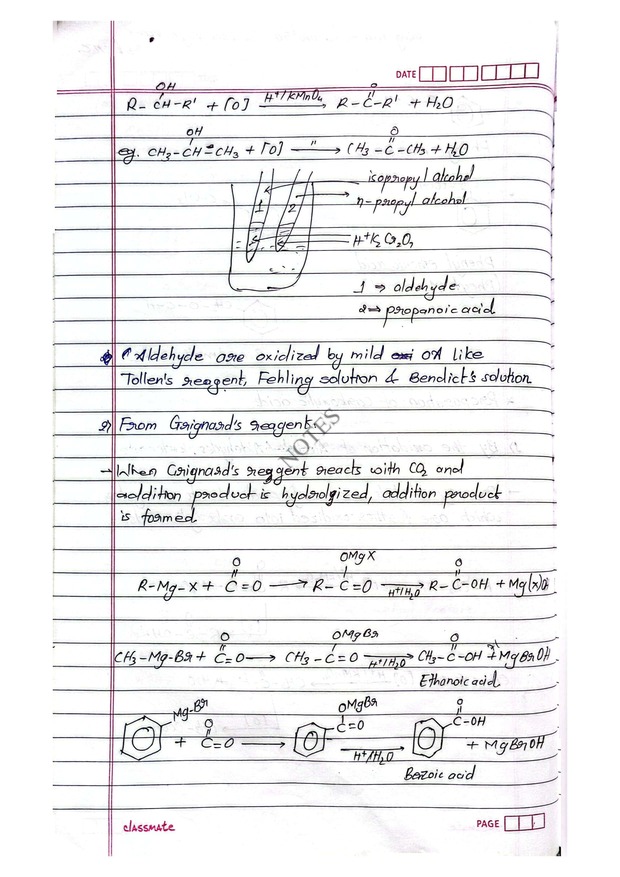 DATE
OH
R-CH-R' + [O] H+/KMnO4 → R-C-R' + H2O
O
OH
eg. CH3-CH-CH3 + [O] " → CH3-C-CH3 + H2O
O
isopropyl alcohol
1 2 n-propyl alcohol
H+K2Cr2O7
1 ⇒ aldehyde
2 ⇒ propanoic acid
Aldehyde are oxidized by mild OA like
Tollen's reagent, Fehling solution & Bendict's solution
2) From Grignard's reagent.
NOTES
→ When Grignard's reagent reacts with CO2 and
addition product is hydrolgized, addition product
is formed.
O OMgX O
R-Mg-X + C=O → R-C=O H+/H2O → R-C-OH + Mg(X)OH
O OMgBr O
CH3-Mg-Br + C=O → CH3-C=O H+/H2O → CH3-C-OH + MgBrOH
Ethanoic acid
Mg-Br O OMgBr O
+ C=O → C=O H+/H2O → C-OH + MgBrOH
Benzoic acid
classmate
PAGE